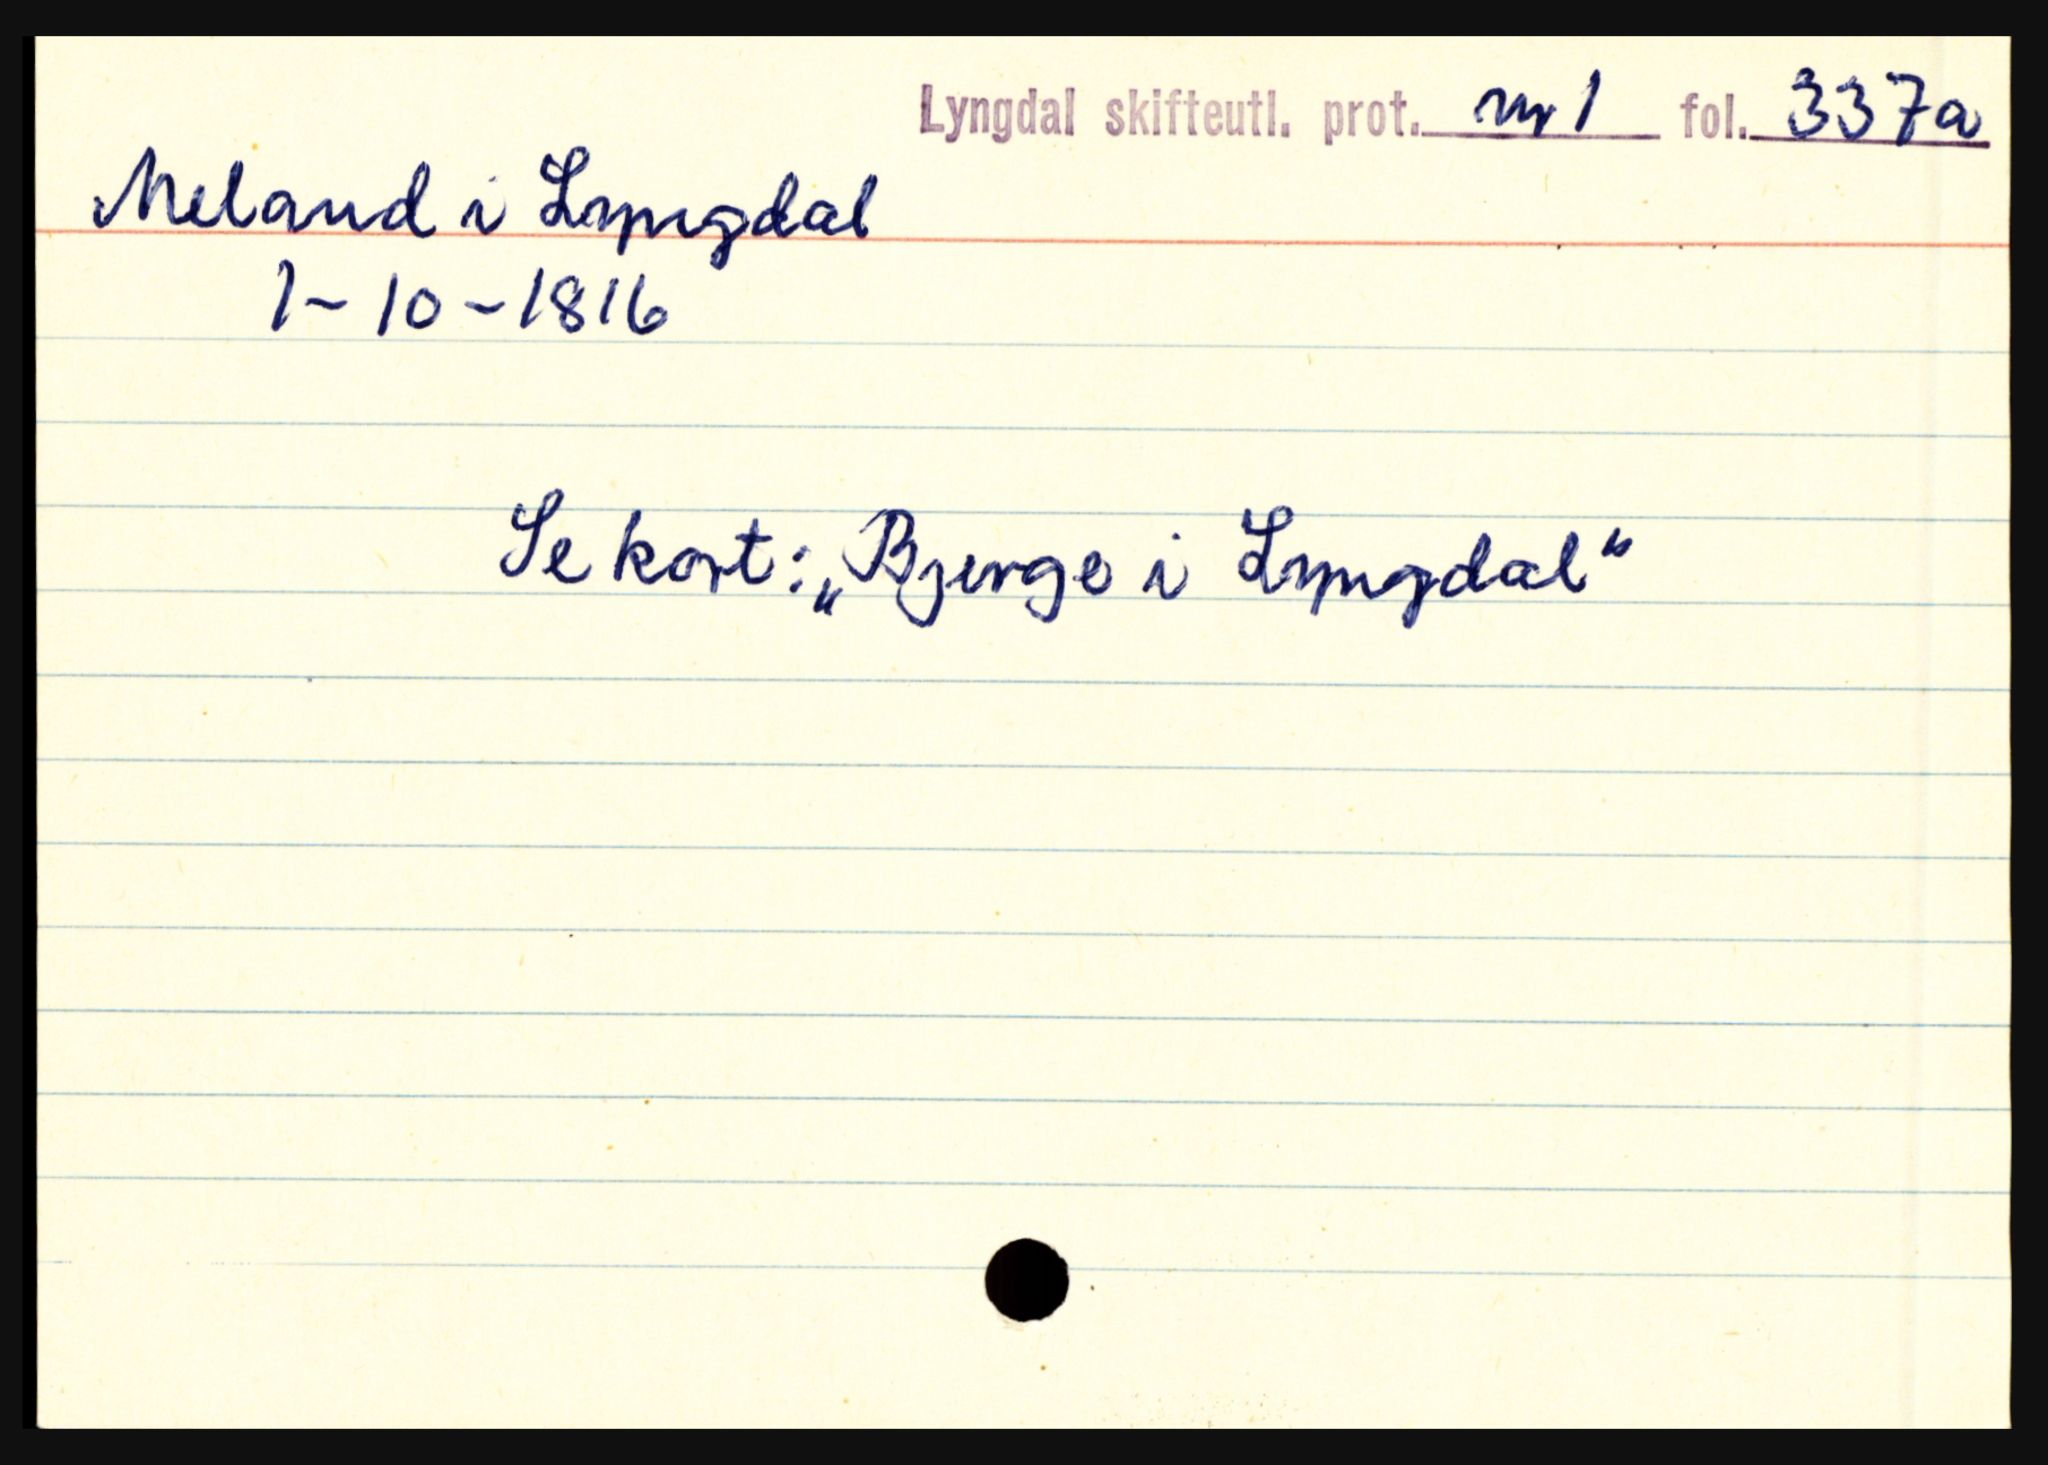 Lyngdal skifteutl. prot. nr 1 fol. 337a
Meland i Lyngdal
1-10-1816
Se kort: „Bjerge i Lyngdal“